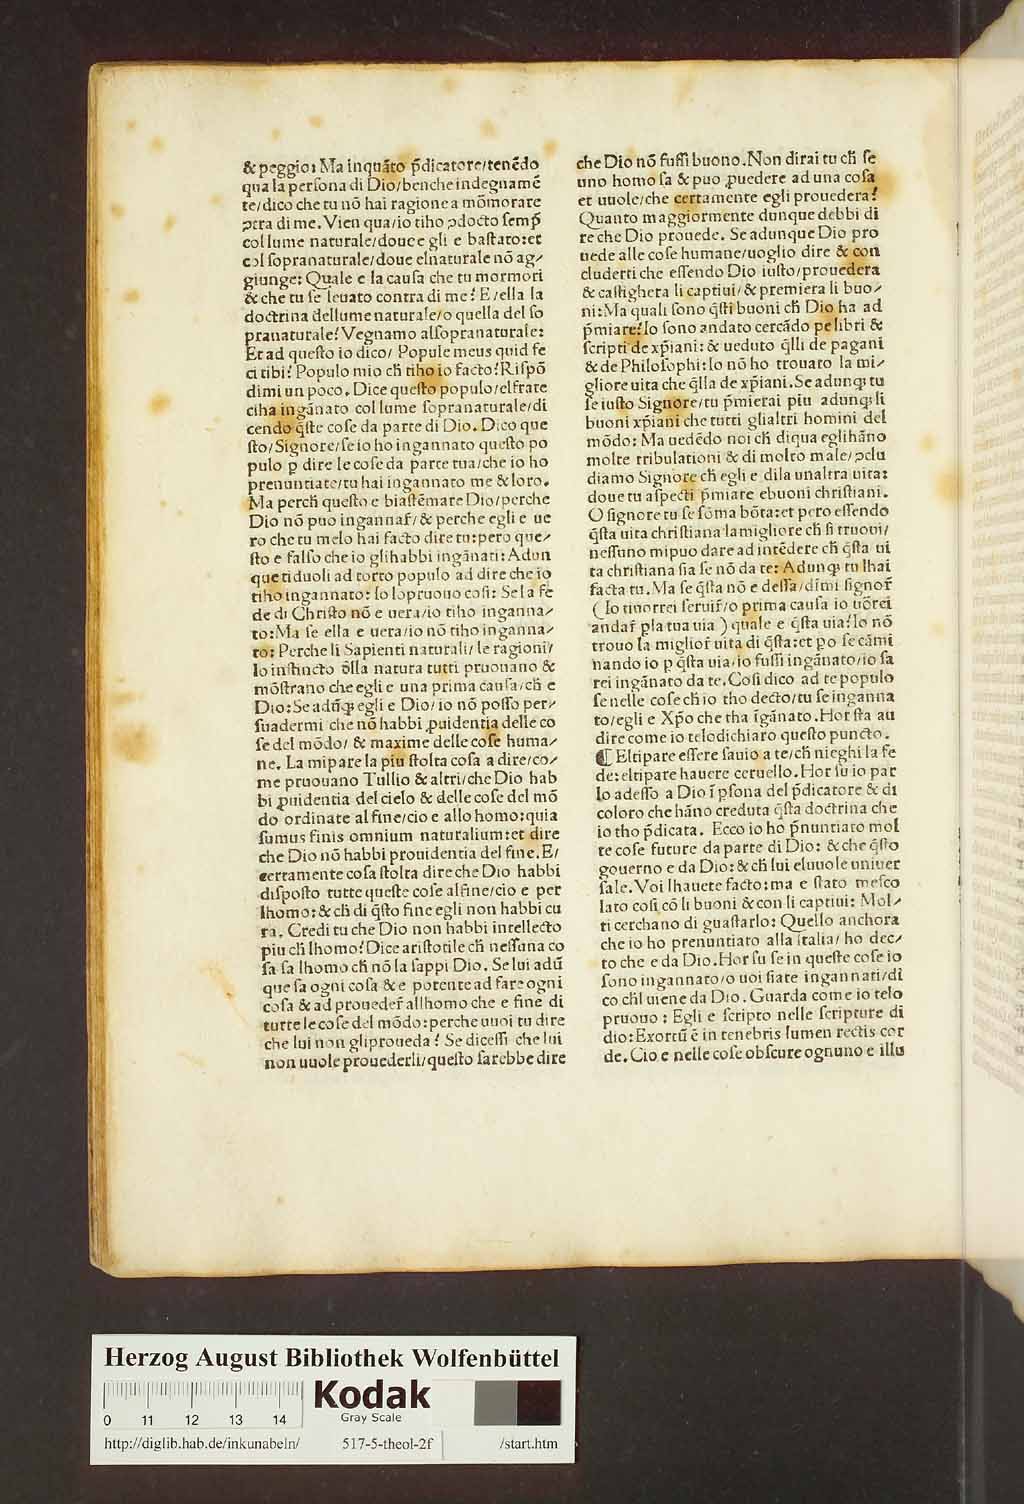 & peggio: Ma inquāto p̄dicatore/tenēdo
qua la persona di Dio/benche indegnamē
te/dico che tu nō hai ragione a mōmorare
ꝯtra di me. Vien qua/io tiho ꝯdocto semp̄
col lume naturale/doue egli e bastato: et
col sopranaturale/doue elnaturale nō ag/
giunge: Quale e la causa che tu mormori
& che tu se leuato contra di me? E/ella la
doctrina dellume naturale/o quella del so
pranaturale? Vegnamo alsopranaturale:
Et ad questo io dico/ Popule meus quid fe
ci tibi? Populo mio ch̄ tiho io facto? Rispō
dimi un poco. Dice questo populo/elfrate
ciha ingānato col lume sopranaturale/di
cendo q̄ste cose da parte di Dio. Dico que
sto/Signore/se io ho ingannato questo po
pulo p dire le cose da parte tua/che io ho
prenuntiate/tu hai ingannato me & loro.
Ma perch̄ questo e biastēmare Dio/perche
Dio nō puo ingannar̄/& perche egli e ue
ro che tu melo hai facto dire tu: pero que/
sto e falso che io glihabbi ingānati: Adun
que tiduoli ad torto populo ad dire che io
tiho ingannato: Io lopruouo cosi: Se la fe
de di Christo nō e uera/io tiho inganna/
to: Ma se ella e uera/io nō tiho inganna/
to: Perche li Sapienti naturali/le ragioni/
lo instincto d̄lla natura tutti pruouano &
mōstrano che egli e una prima causa/ch̄ e
Dio: Se adūq̄ egli e Dio/io nō posso per/
suadermi che nō habbi ꝓuidentia delle co
se del mōdo/ & maxime delle cose huma/
ne. La mi pare la piu stolta cosa a dire/co/
me pruouano Tullio & altri/che Dio hab
bi ꝓuidentia del cielo & delle cose del mō
do ordinate al fine/cio e allo homo: quia
sumus finis omnium naturalium: et dire
che Dio nō habbi prouidentia del fine. E/
certamente cosa stolta dire che Dio habbi
disposto tutte queste cose alfine/cio e per
lhomo: & ch̄ di q̄sto fine egli non habbi cu
ra. Credi tu che Dio non habbi intellecto
piu ch̄ lhomo? Dice aristotile ch̄ nessuna co
sa sa lhomo ch̄ nō la sappi Dio. Se lui adū
que sa ogni cosa & e potente ad fare ogni
cosa & ad proueder̄ allhomo che e fine di
tutte le cose del mōdo: perche uuoi tu dire
che lui non gliproueda? Se dicessi che lui
non uuole prouederli/questo sarebbe dire
che Dio nō fussi buono. Non dirai tu ch̄ se
uno homo sa & puo ꝓuedere ad una cosa
et uuole/che certamente egli prouedera?
Quanto maggiormente dunque debbi di
re che Dio prouede. Se adunque Dio pro
uede alle cose humane/uoglio dire & con
cluderti che essendo Dio iusto/prouedera
& castighera li captiui/& premiera li buo/
ni: Ma quali sono q̄sti buoni ch̄ Dio ha ad
p̄miare? Io sono andato cercādo pe libri &
scripti de xp̄iani: & ueduto q̄lli de pagani
& de Philosophi: Io nō ho trouato la mi/
gliore uita che q̄lla de xp̄iani. Se adunq; tu
se iusto Signore/tu p̄mierai piu adunq; li
buoni xp̄iani che tutti glialtri homini del
mōdo: Ma uedēdo noi ch̄ di qua eglihāno
molte tribulationi & di molto male/ꝯclu
diamo Signore ch̄ egli e di la unaltra uita:
doue tu aspecti p̄miare ebuoni christiani.
O signore tu se sōma bōta: et pero essendo
q̄sta uita christiana la migliore ch̄ si truoui/
nessuno mi puo dare ad intēdere ch̄ q̄sta ui
ta christiana sia se nō da te: Adunq; tu lhai
facta tu. Ma se q̄sta nō e dessa/dīmi signor̄
( Io ti uorrei seruir̄/o prima causa io uōrei
andar̄ p la tua uia ) quale e q̄sta uia? Io nō
trouo la miglior̄ uita di q̄sta: et po se cāmi
nando io p q̄sta uia/io fussi ingānato/io sa
rei ingānato da te. Cosi dico ad te populo
se nelle cose ch̄ io tho decto/tu se inganna
to/egli e Xp̄o che tha īgānato. Hor sta au
dire come io telo dichiaro questo puncto.
¶ El ti pare essere sauio a te/ch̄ nieghi la fe
de: el ti pare hauere ceruello. Hor su io par
lo adesso a Dio ī psona del p̄dicatore & di
coloro che hāno creduta q̄sta doctrina che
io tho p̄dicata. Ecco io ho p̄nuntiato mol
te cose future da parte di Dio: & che q̄sto
gouerno e da Dio: & ch̄ lui el uuole uniuer
sale. Voi lhauete facto: ma e stato mesco
lato cosi cō li buoni & con li captiui: Mol/
ti cerchano di guastarlo: Quello anchora
che io ho prenuntiato alla Italia/ho dec/
to che e da Dio. Hor su se in queste cose io
sono ingannato/o uoi siate ingannati/di
co ch̄l uiene da Dio. Guarda come io telo
pruouo: Egli e scripto nelle scripture di
dio: Exortū ē in tenebris lumen rectis cor
de. Cio e nelle cose obscure ognuno e illu
Herzog August Bibliothek Wolfenbüttel
Kodak
Gray Scale
0 11 12 13 14
http://diglib.hab.de/inkunabeln/ 517-5-theol-2f /start.htm